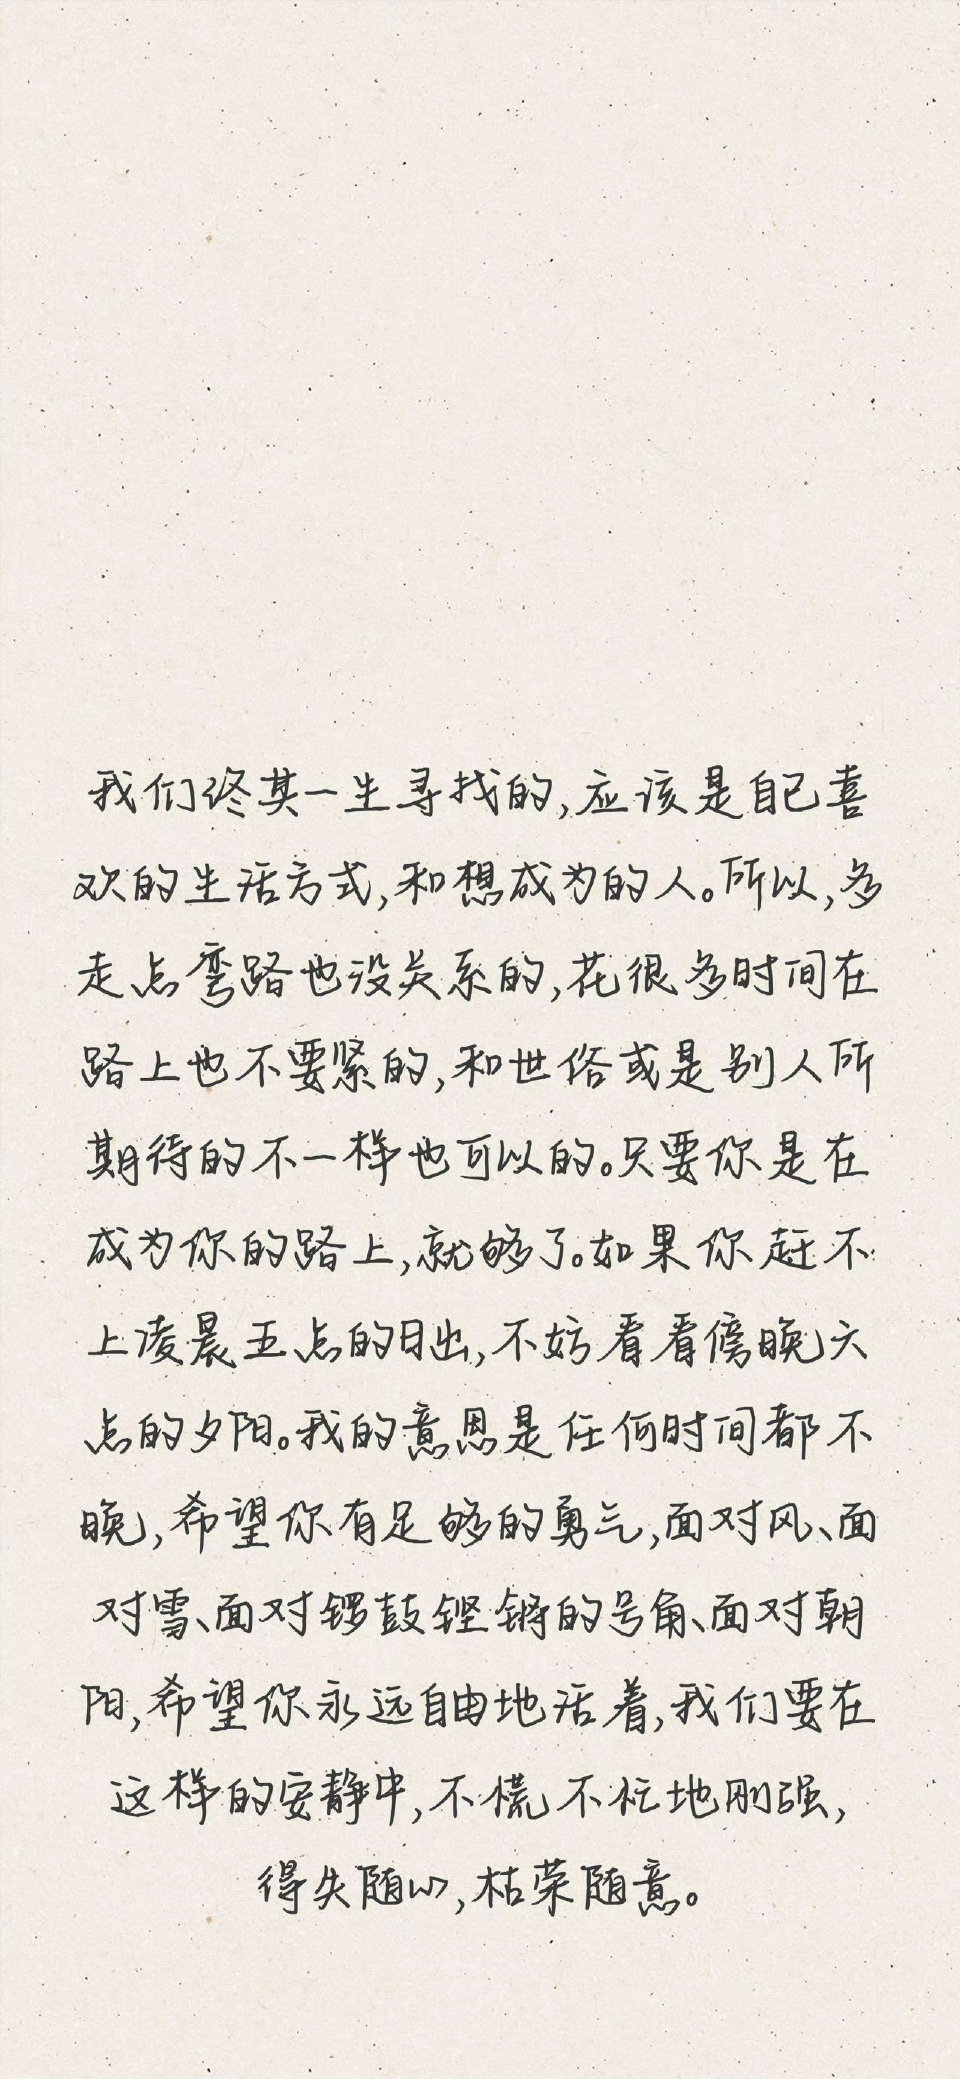 我们终其一生寻找的,应该是自己喜
欢的生活方式,和想成为的人。所以,多
走点弯路也没关系的,花很多时间在
路上也不要紧的,和世俗或是别人所
期待的不一样也可以的。只要你是在
成为你的路上,就够了。如果你赶不
上凌晨五点的日出,不妨看看傍晚六
点的夕阳。我的意思是任何时间都不
晚,希望你有足够的勇气,面对风、面
对雪、面对锣鼓铿锵的号角、面对朝
阳,希望你永远自由地活着,我们要在
这样的安静中,不慌不忙地刚强,
得失随心,枯荣随意。